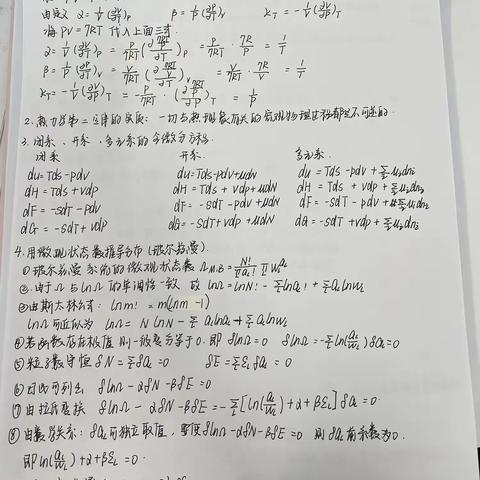 由定义 α = 1/V (∂V/∂T)_P   β = 1/P (∂P/∂T)_V   K_T = -1/V (∂V/∂P)_T
将 PV = 7RT 代入上面三式
α = 1/V (∂V/∂T)_P = P/7RT (∂ 7RT/P / ∂T)_P = P/7RT · 7R/P = 1/T
β = 1/P (∂P/∂T)_V = V/7RT (∂ 7RT/V / ∂T)_V = V/7RT · 7R/V = 1/T
K_T = -1/V (∂V/∂P)_T = -P/7RT · (∂ 7RT/P / ∂P)_T = 1/P
2. 热力学第二定律的实质: 一切与热现象有关的宏观物理过程都是不可逆的.
3. 闭系、开系、多元系的全微分方程.
闭系   开系   多元系
du = Tds - pdv   du = Tds - pdv + μdN   du = Tds - pdv + Σ μi dni
dH = Tds + vdp   dH = Tds + vdp + μdN   dH = Tds + vdp + Σ μi dni
dF = -sdT - pdv   dF = -sdT - pdv + μdN   dF = -sdT - pdv + Σ μi dni
dG = -sdT + vdp   dG = -sdT + vdp + μdN   dG = -sdT + vdp + Σ μi dni
4. 用微观状态数推导分布 (玻尔兹曼).
① 玻尔兹曼系统的微观状态数 Ω_M.B = N!/Π a_l! Π w_l^a_l
② 由于Ω与lnΩ的单调性一致 故 lnΩ = lnN! - Σ ln a_l! + Σ a_l ln w_l
③ 由斯大林公式: ln m! = m(ln m - 1)
lnΩ 可近似为 lnΩ = N lnN - Σ a_l ln a_l + Σ a_l ln w_l
④ 若函数存在极值 则一级微分等于0. 即 δlnΩ = 0   δlnΩ = -Σ ln(a_l/w_l) δa_l = 0
⑤ 粒子数守恒 δN = Σ δa_l = 0   δE = Σ ε_l δa_l = 0
⑥ 因此可列出 δlnΩ - αδN - βδE = 0
⑦ 由拉氏乘法 δlnΩ - αδN - βδE = -Σ [ln(a_l/w_l) + α + βε_l] δa_l = 0
⑧ 由数学关系: δa_l 可独立取值, 要使 δlnΩ - αδN - βδE = 0 则 δa_l 前系数为0.
即 ln(a_l/w_l) + α + βε_l = 0.